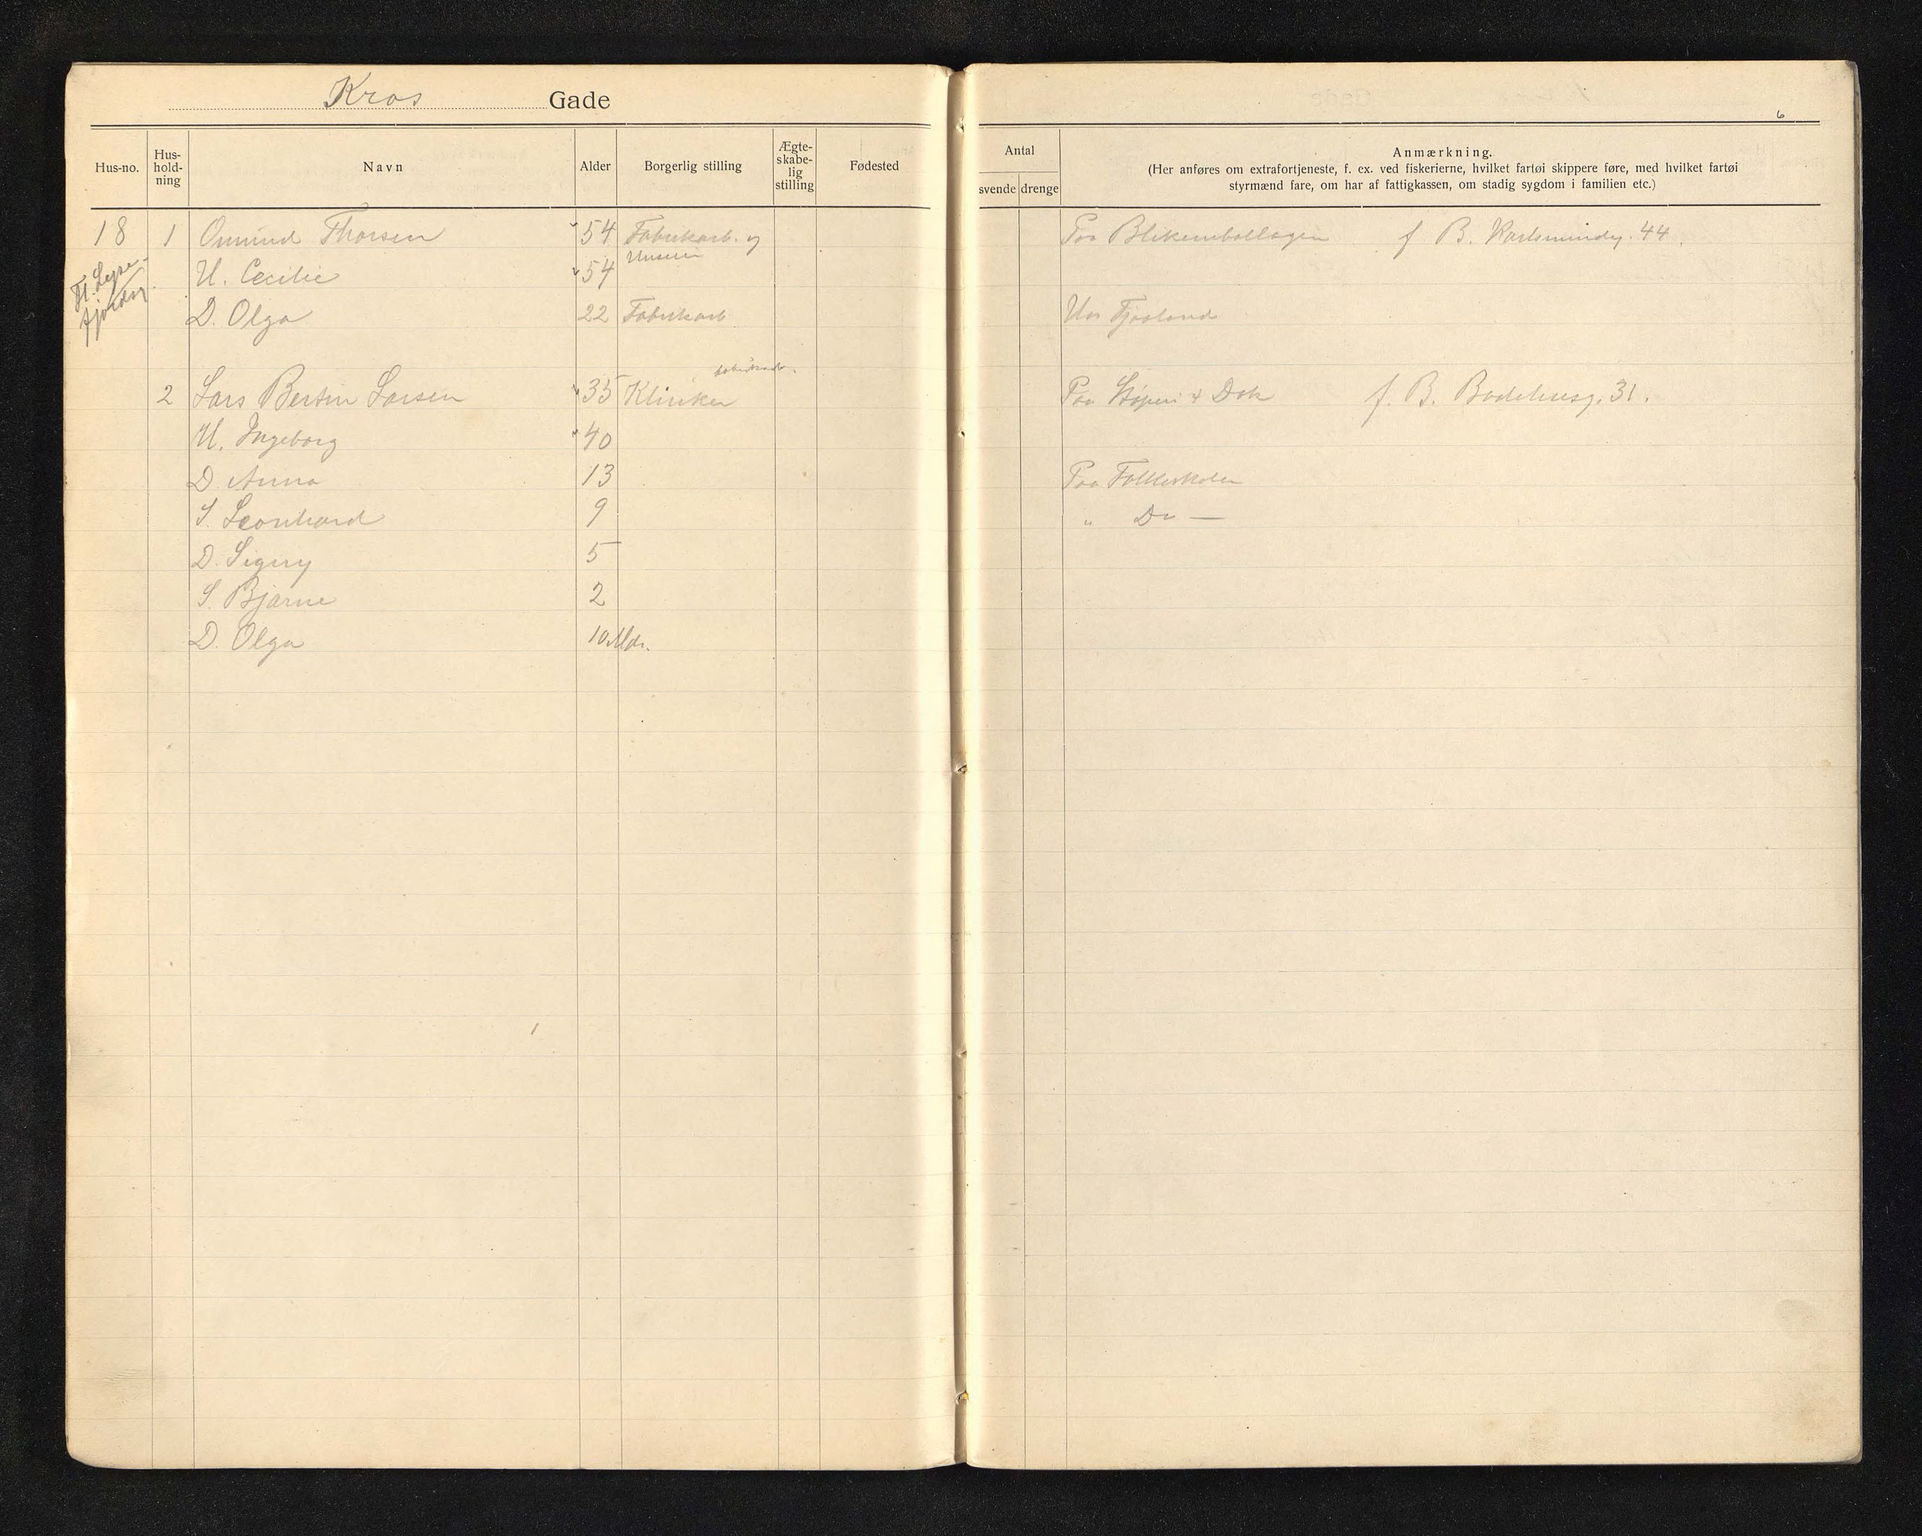 Kros Gade
6
Hus-no.
Hus-hold-ning
Navn
Alder
Borgerlig stilling
Ægte-skabe-lig stilling
Fødested
Antal
svende
drenge
Anmærkning.
(Her anføres om extrafortjeneste, f. ex. ved fiskerierne, hvilket fartøi skippere føre, med hvilket fartøi
styrmænd fare, om har af fattigkassen, om stadig sygdom i familien etc.)
18 1 Omund Thorsen 54 Fabrikarb. og Paa Blikemballagen f B. Karlsmindeg. 44.
Huseier
H. Lyse-
fjordsg.
H. Cecilie 54
D. Olga 22 Fabrikarb Hos Fjaaland
fabrikarb.
2 Lars Bertin Larsen 35 Klinker Paa Støperi & Dok f. B. Badehusg. 31.
H. Ingeborg 40
D. Anna 13 Paa Folkeskolen
S. Leonhard 9 " Do —
D. Signy 5
S. Bjarne 2
D. Olga 10 Mdr.